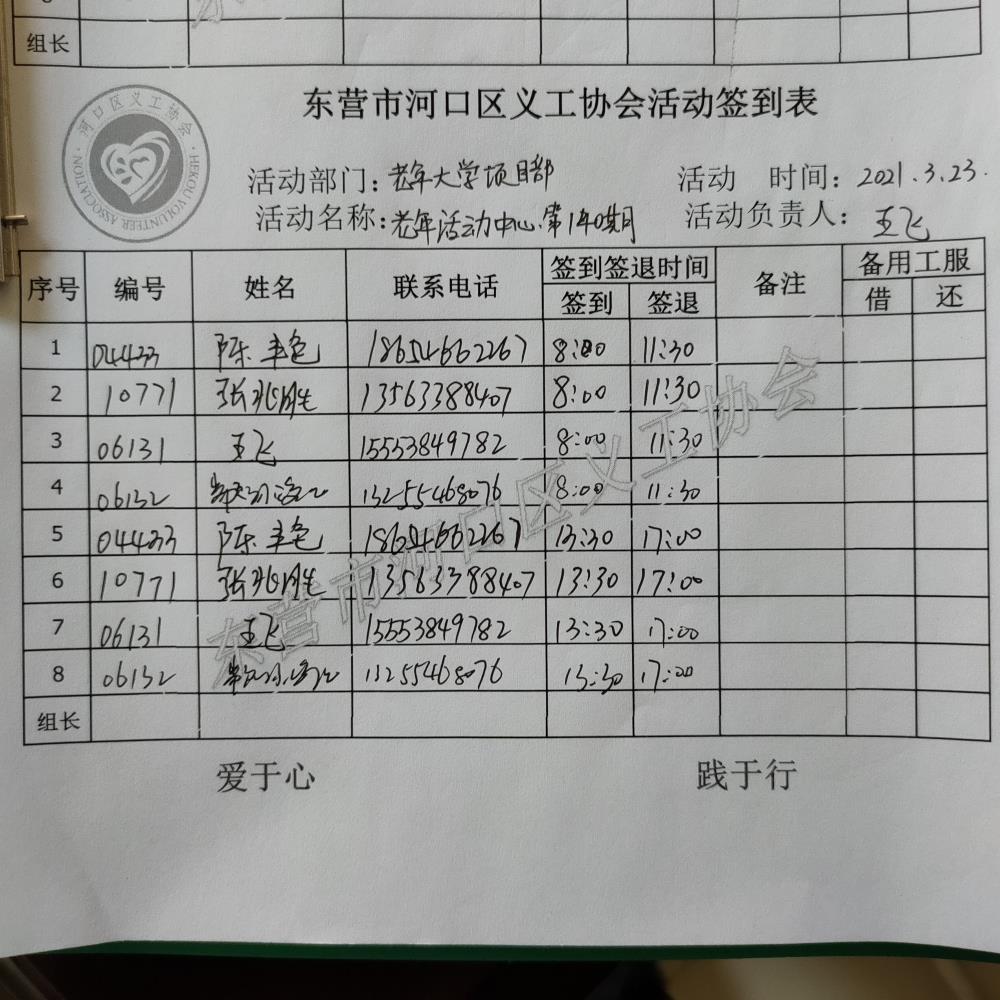 组长
东营市河口区义工协会活动签到表
河口区义工协会
HEKOU VOLUNTEER ASSOCIATION
活动部门：老年大学项目部 活动 时间：2021.3.23.
活动名称：老年活动中心第140期 活动负责人：王飞
序号 编号 姓名 联系电话 签到签退时间 备注 备用工服
签到 签退 借 还
1 04433 陈 18654662267 8:00 11:30
2 10771 张兆胜 13563388407 8:00 11:30
3 06131 王飞 15553849782 8:00 11:30
4 06132 13255468076 8:00 11:30
5 04433 陈 18654662267 13:30 17:00
6 10771 张兆胜 13563388407 13:30 17:00
7 06131 王飞 15553849782 13:30 17:00
8 06132 13255468076 13:30 17:00
组长
东营市河口区义工协会
爱于心 践于行